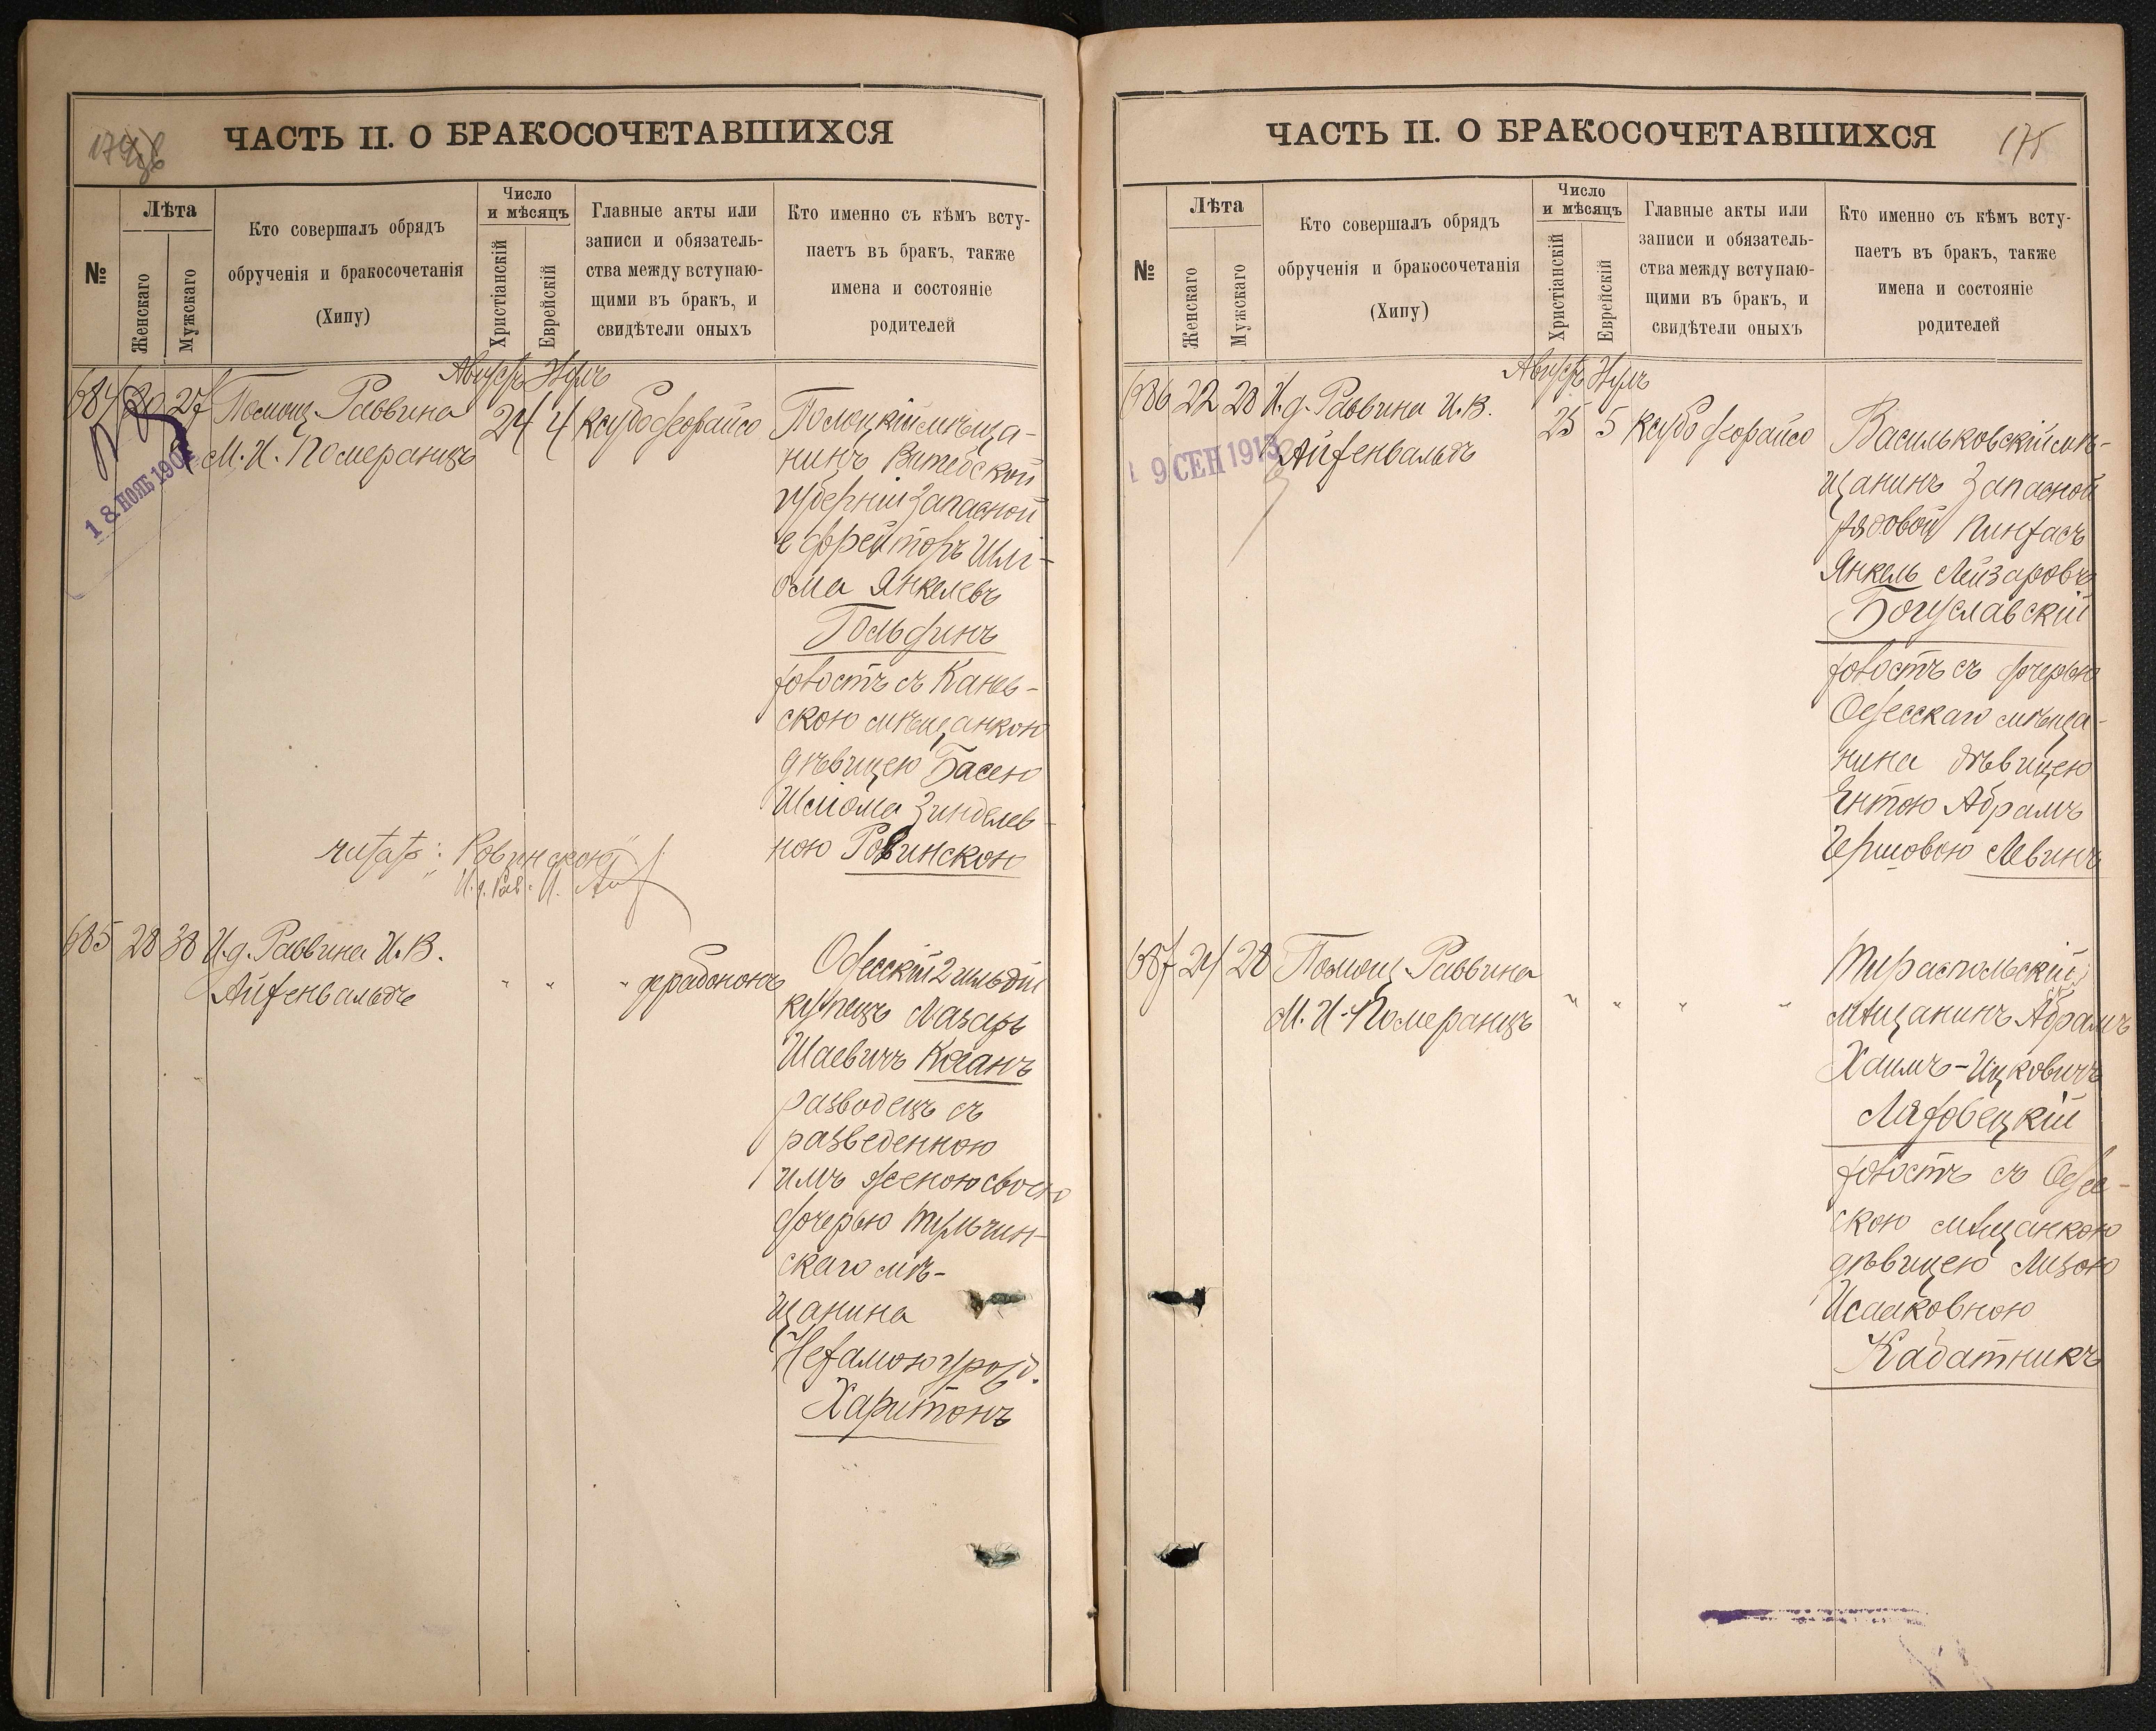 ЧАСТЬ II. О БРАКОСОЧЕТАВШИХСЯ
№
Лѣта
Женскаго
Мужскаго
Кто совершалъ обрядъ
обрученія и бракосочетанія
(Хипу)
Число
и мѣсяцъ
Христіанскій
Еврейскій
Главные акты или
записи и обязатель-
ства между вступаю-
щими въ бракъ, и
свидѣтели оныхъ
Кто именно съ кѣмъ всту-
паетъ въ бракъ, также
имена и состояніе
родителей
Августъ
684 27 Помощ. Раввина
М. И. Померанцъ
24 4
Полоцкій мѣща-
нинъ Витебской
губерніи запасной
ефрейторъ Шлі-
ома Янкелевъ
Гольдинъ
холостъ съ Канев-
скою мѣщанкою
дѣвицею Басею
Шліома Зинделев-
ною Ровинскою
18 НОЯБ 190
читать: "Ровинскою"
685 28 38 И. д. Раввина И. В.
Айхенвальдъ
" " "
Одесскій 2 гильдіи
купецъ Лазарь
Шаевичъ Коганъ
разводецъ съ
разведенною
имъ женою своею
дочерью Тульчин-
скаго мѣ-
щанина
Нехамою урож.
Харитонъ
ЧАСТЬ II. О БРАКОСОЧЕТАВШИХСЯ
175
№
Лѣта
Женскаго
Мужскаго
Кто совершалъ обрядъ
обрученія и бракосочетанія
(Хипу)
Число
и мѣсяцъ
Христіанскій
Еврейскій
Главные акты или
записи и обязатель-
ства между вступаю-
щими въ бракъ, и
свидѣтели оныхъ
Кто именно съ кѣмъ всту-
паетъ въ бракъ, также
имена и состояніе
родителей
Августъ
686 22 28 И. д. Раввина И. В.
Айхенвальдъ
25 5
9 СЕН 1913
Васильковскій мѣ-
щанинъ запасной
рядовой Пинхасъ
Янкель Лейзаровъ
Богуславскій
холостъ съ дочерью
Одесскаго мѣща-
нина дѣвицею
Ентою Абрамъ
Гершовою Левинъ
687 24 28 Помощ. Раввина
М. И. Померанцъ
" " " "
Тираспольскій
мѣщанинъ Абрамъ
Хаимъ-Ицковичъ
Ляховецкій
холостъ съ Одес-
скою мѣщанкою
дѣвицею Лизою
Исааковною
Кабатникъ